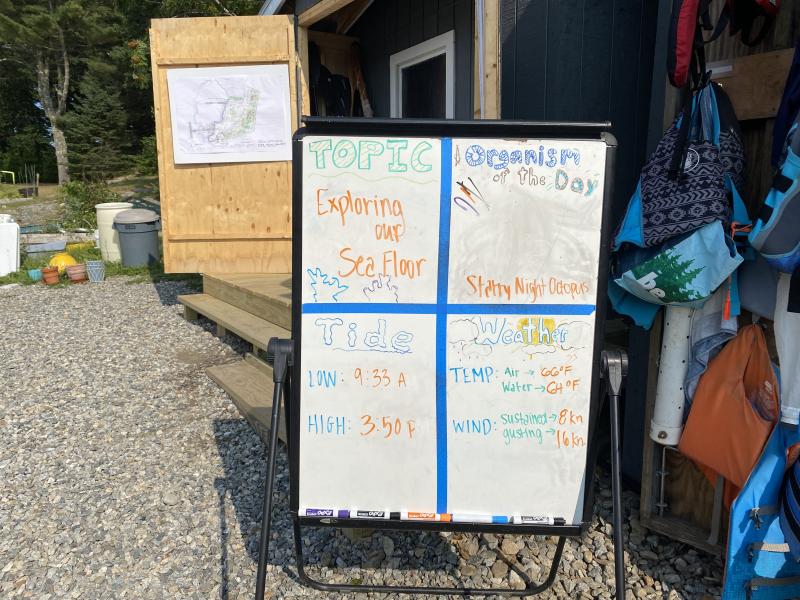 TOPIC
Exploring
our
Sea Floor
Organism
of the Day
Starry Night Octopus
Tide
LOW: 9:33 A
HIGH: 3:50 P
Weather
TEMP: Air → 66°F
Water → 64°F
WIND: sustained → 8 kn
gusting → 16 kn